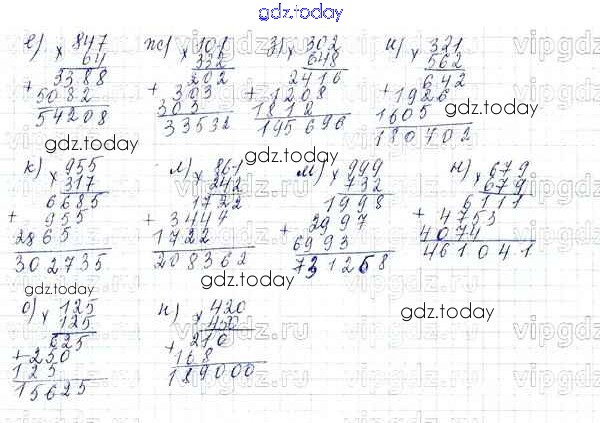 gdz.today
е) × 847
64
3388
+ 5082
54208
ж) × 101
332
202
+ 303
303
33532
з) × 302
648
2416
+ 1208
1812
195696
и) × 321
562
642
+ 1926
1605
180402
gdz.today
gdz.today
gdz.today
к) × 955
317
6685
+ 955
2865
302735
л) × 861
242
1722
+ 3444
1722
208362
м) × 999
732
1998
+ 2997
6993
731268
н) × 679
679
6111
+ 4753
4074
461041
gdz.today
gdz.today
о) × 125
125
625
+ 250
125
15625
п) × 420
450
+ 210
168
189000
vipgdz.ru